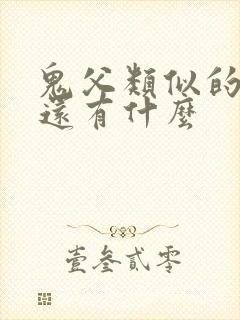 鬼父類似的
還有什麼
壹叁貳零